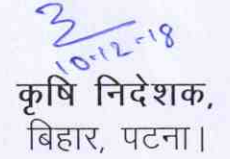 10-12-18
कृषि निदेशक,
बिहार, पटना।